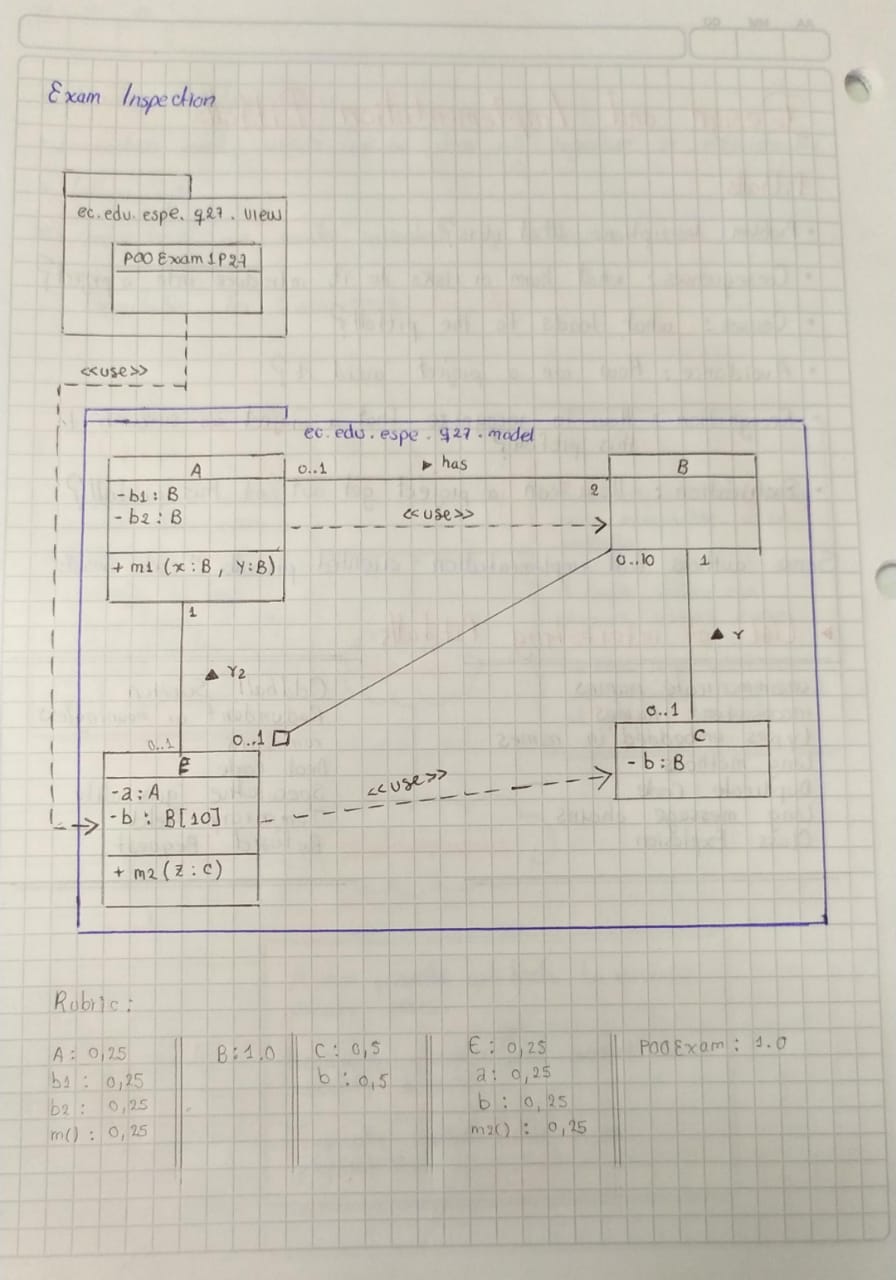 Exam Inspection
ec.edu.espe.g27.view
POOExam1P27
<<use>>
ec.edu.espe.g27.model
A
-b1: B
-b2: B
+ m1 (x: B, Y: B)
0..1
▶ has
2
<<use>>
B
0..10
1
1
▲ r2
▲ r
0..1
0..1
0..1
E
-a: A
-b : B[10]
+ m2 (z : C)
<<use>>
C
- b: B
Rubric:
A: 0,25
b1: 0,25
b2: 0,25
m(): 0,25
B: 1.0
C: 0,5
b: 0,5
E: 0,25
a: 0,25
b: 0,25
m2(): 0,25
POOExam: 1.0